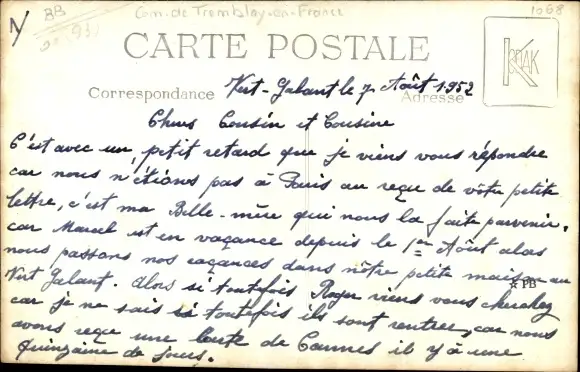 N
BB
93
Com. de Tremblay-en-France
1068
CARTE POSTALE
KODAK
Correspondance
Adresse
Vert-Galant le 7 Août 1952
Chers Cousin et Cousine
C'est avec un petit retard que je viens vous répondre
car nous n'étions pas à Paris au reçu de vôtre petite
lettre, c'est ma Belle-mère qui nous la faite parvenir.
car Marcel est en vacance depuis le 1er Août alors
nous passons nos vacances dans nôtre petite maison au
Vert Galant. Alors si toutefois Roger viens vous cherchez
☆PB
car je ne sais si toutefois ils sont rentrer, car nous
avons reçue une carte de Cannes il y à une
Quinzaine de jours.